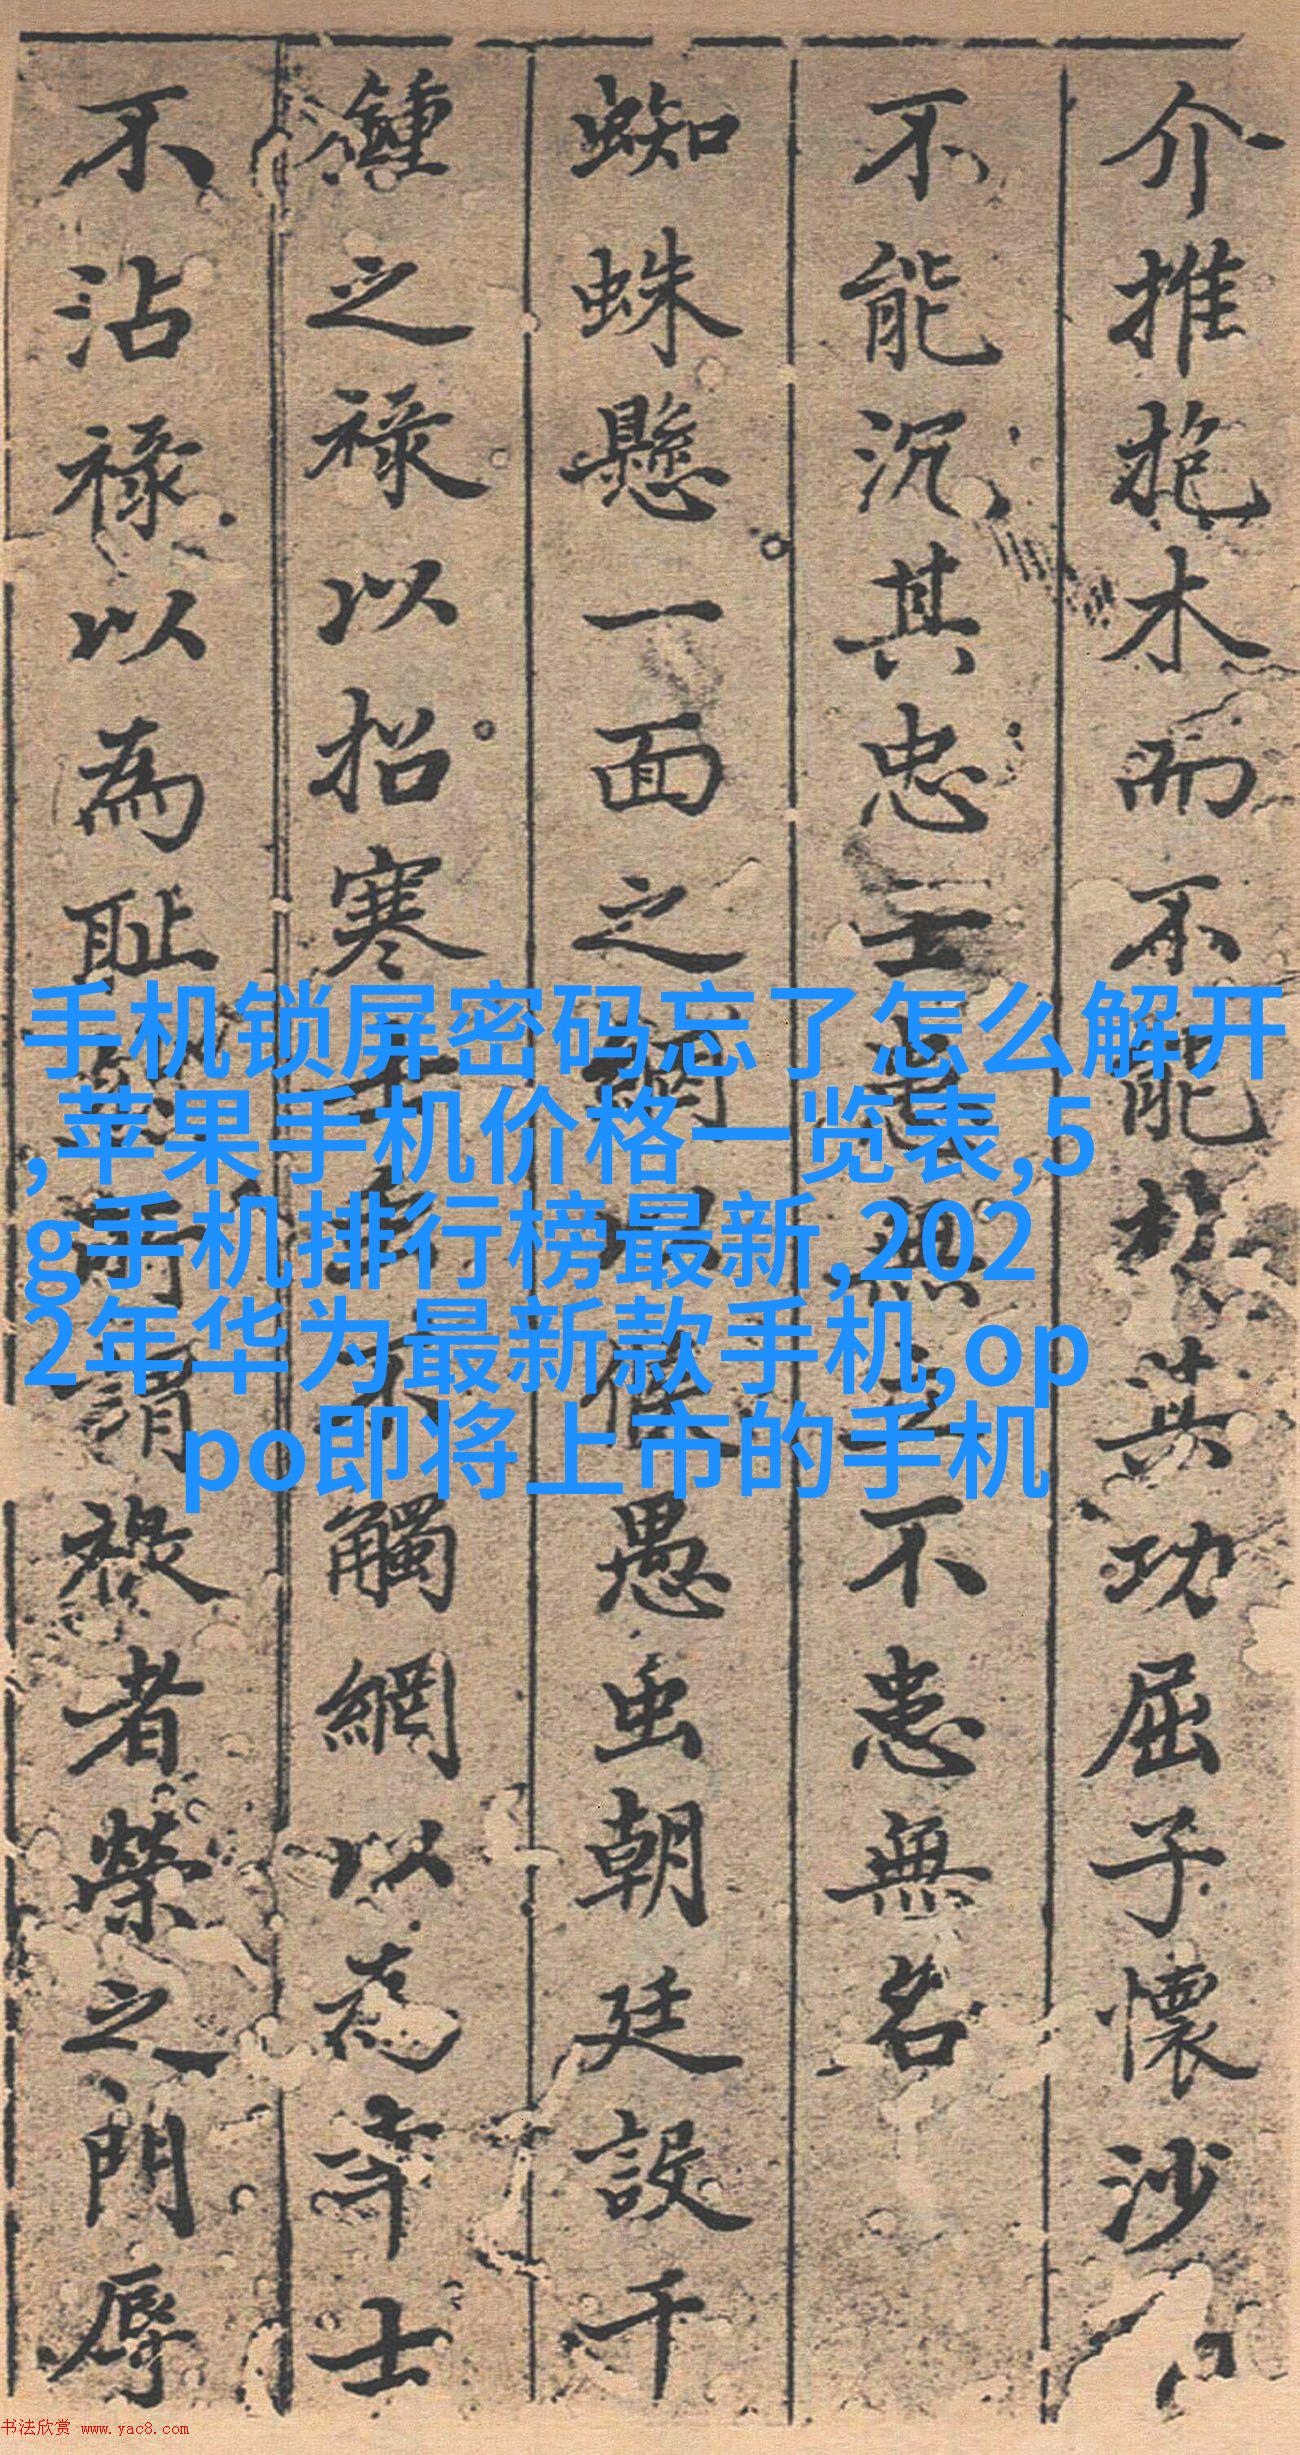 介推抱木而不能其功屈子懷沙
不能沉其忠士不患無名
蜘蛛懸一面之網以愚虫朝廷設千
鍾之祿以招寒士不觸網以為士
不沾祿以為恥謂祿者榮之門辱
手机锁屏密码忘了怎么解开
,苹果手机价格一览表,5
g手机排行榜最新,202
2年华为最新款手机,op
po即将上市的手机
书法欣赏 www.yac8.com